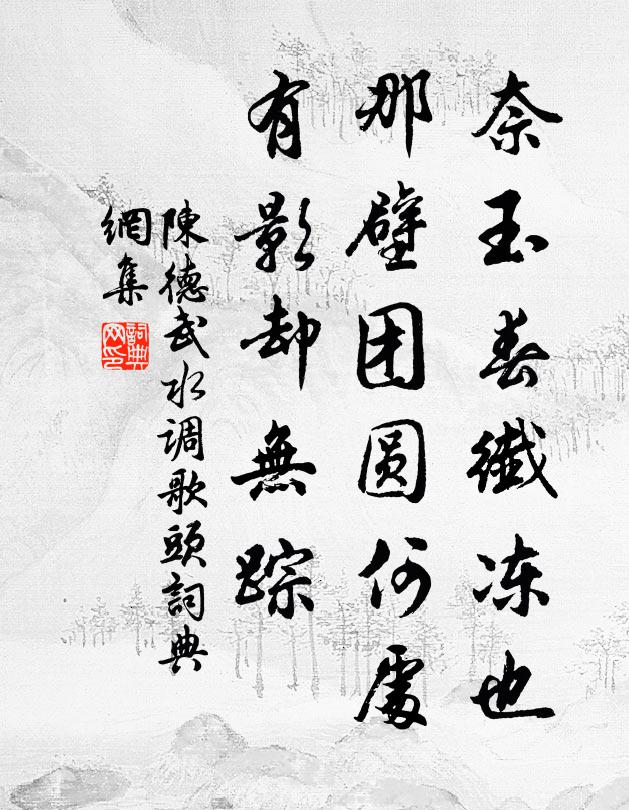 奈玉春纖冻也
那壁团圆何處
有影却無踪
陳德武水调歌頭詞典
網集
詞典
网印